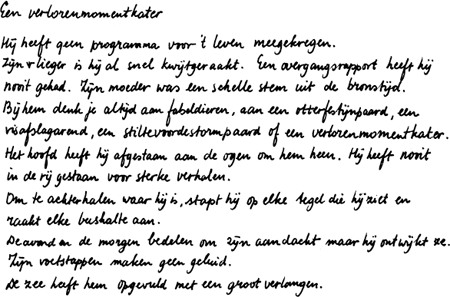 Een verlorenmomentkater
Hij heeft geen programma voor 't leven meegekregen.
Zijn vlieger is hij al snel kwijtgeraakt. Een overgangsrapport heeft hij
nooit gehad. Zijn moeder was een schelle stem uit de bronstijd.
Bij hem denk je altijd aan fabeldieren, aan een otterfestijnpaard, een
visafslagarend, een stiltevoordestormpaard of een verlorenmomentkater.
Het hoofd heeft hij afgestaan aan de ogen om hem heen. Hij heeft nooit
in de rij gestaan voor sterke verhalen.
Om te achterhalen waar hij is, stapt hij op elke tegel die hij ziet en
raakt elke bushalte aan.
De avond en de morgen bedelen om zijn aandacht maar hij ontwijkt ze.
Zijn voetstappen maken geen geluid.
De zee heeft hem opgevuld met een groot verlangen.